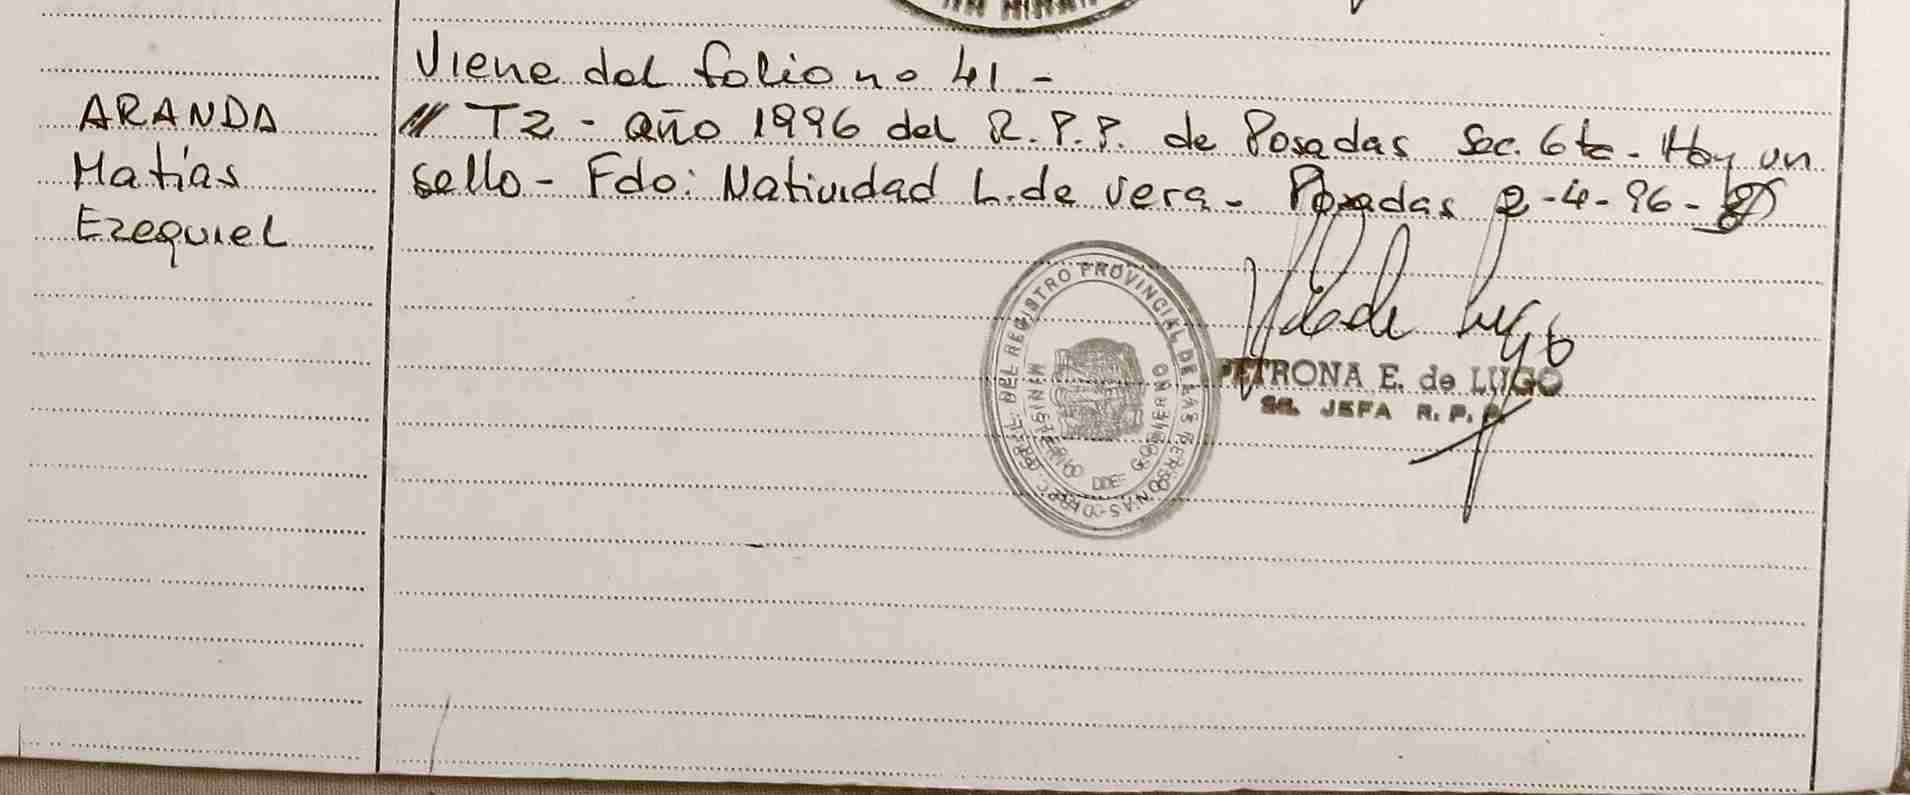 Viene del folio no 41 -
ARANDA
Matías
Ezequiel
// T2 - año 1996 del R.P.P. de Posadas Sec. 6ta - Hay un
sello - Fdo: Natividad L. de Vera - Posadas 2-4-96 -
DEL REGISTRO PROVINCIAL DE LAS PERSONAS
MINISTERIO DE GOBIERNO
PETRONA E. de LUGO
JEFA R. P. P.